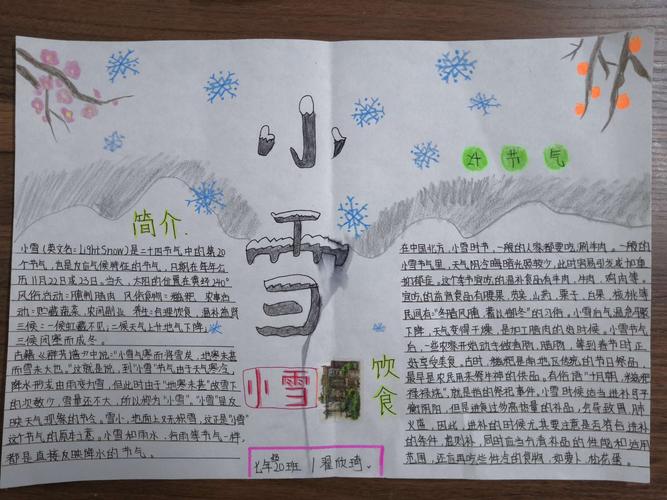 小雪
24 节 气
简介.
小雪 (英文名：LightSnow)是二十四节气中的第20
个节气，也是反应气候特征的节气，日期在每年公
历11月22日或23日。当天，太阳的位置在黄经240°
风俗活动：腌制腊肉 风俗食物：糍粑 农事活
动：贮藏蔬菜，农间副业 养生：合理饮食，温补益肾
三候：一候虹藏不见；二候天气上升地气下降；
三候闭塞而成冬。
古籍《群芳谱》中说："小雪气寒而将雪矣，地寒未甚
而雪未大也。"这就是说，到"小雪"节气由于天气寒冷，
降水形式由雨变为雪，但此时由于"地寒未甚"故雪下
的次数少，雪量还不大，所以称为"小雪"。"小雪"是反
映天气现象的节令。雪小，地面上又无积雪，这正是"小雪"
这个节气的原本之意。小雪和雨水、谷雨等节气一样，
都是直接反映降水的节气。
小雪
饮食
在中国北方，小雪时节，一般的人家都要吃刷羊肉。一般的
小雪节气里，天气阴冷晦暗光照较少，此时容易引发或加重
抑郁症。这个季节宜吃的温补食品有羊肉，牛肉，鸡肉等。
宜吃的益肾食品有腰果，芡实，山药，栗子，白果，核桃等
民间有："冬腊风腌，蓄以御冬"的习俗。小雪后气温急剧
下降，天气变得干燥，是加工腊肉的好时候。小雪节气
后，一些农家开始动手做香肠，腊肉，等到春节时正
好享受美食。古时，糍粑是南地区传统的节日祭品，
最早是农民用来祭牛神的供品。有俗语"十月朝，糍粑
禄禄烧"，就是指的祭祀事件。小雪时候适当进补可平
衡阴阳，但是进食过分高热量的补品，会导致胃、肺
火盛，因此，进补的时候尤其要注意是否有负进补
的条件，虚则补，同时应当分清补品的性能和适用
范围，还应再吃些性凉的食物，如萝卜，松花蛋。
七年级20班 翟欣琦.